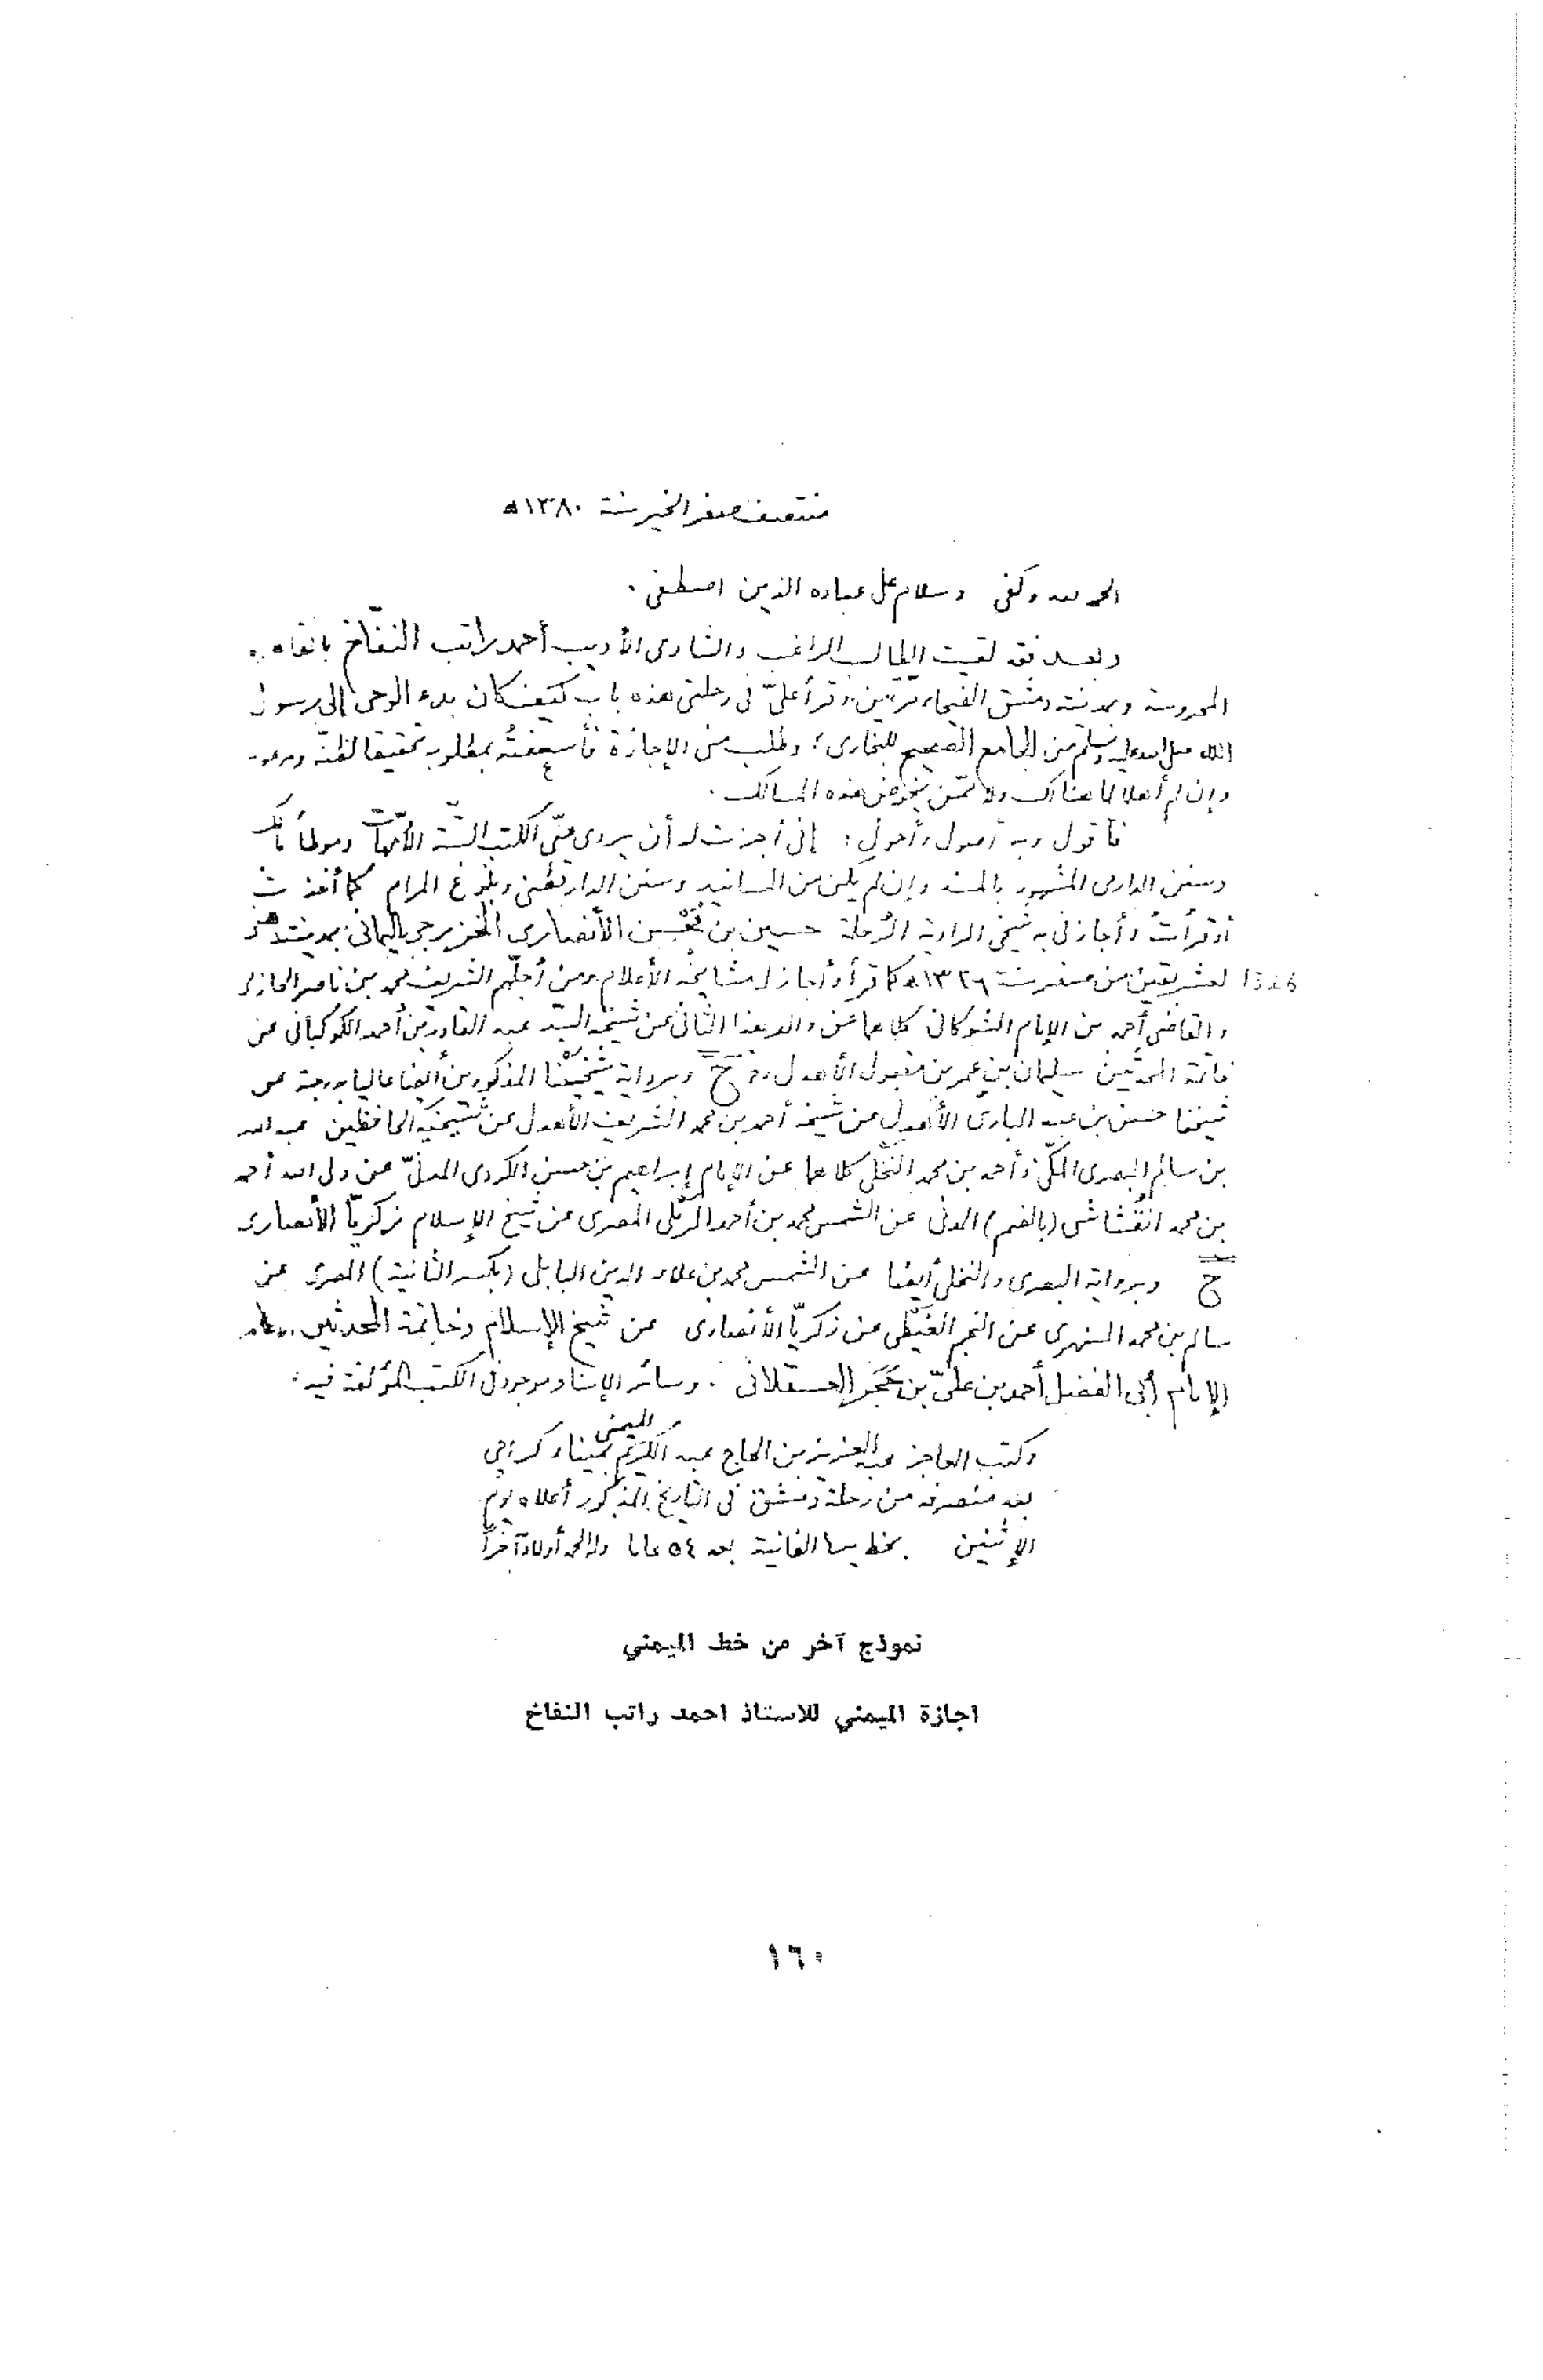 منتصف صفر الخير سنة ١٣٨٠هـ
الحمد لله وكفى وسلام على عباده الذين اصطفى.
وبعد فقد لقيت الطالب الراغب والشادى الأديب أحمد راتب النفّاخ بالقاهرة
المحروسة وبمدينة دمشق الفيحاء مرّتين، وقرأ علىّ فى رحلتى هذه باب كيف كان بدء الوحى إلى رسول
الله صلى الله عليه وسلم من الجامع الصحيح للبخارى؛ وطلب منى الإجازة فأسعفتُه بمطلوبه تحقيقا لظنّه
وإن لم أهلا لما هنالك ولا ممّن يخوض هذه المسالك.
فأقول وبه أصول وأحول: إنى أجزت له أن يروى عنّى الكتب الستّة الأمّهات وموطأ مالك
وسنن الدارمى المشهور بالمسند وإن لم يكن من المسانيد وسنن الدارقطنى وبلوغ المرام كما أخذت
وقرأتُ وأجازنى به شيخى الراوية الرُحلة حسين بن مُحْسِن الأنصارى الخزرجى اليمانى بمدينة
لعشر بقين من صفر سنة ١٣٢٦هـ كما قرأ وأجاز له مشايخه الأعلام ومن أجلّهم الشريف محمد بن ناصر الحازمى
والقاضى أحمد بن الإمام الشوكانى كلاهما عن والد هذا الثانى عن شيخه السيّد عبد القادر بن أحمد الكوكبانى عن
خاتمة المحدّثين سليمان بن عمر بن مقبول الأهدل ح وبرواية شَيْخَيْنا المذكورين أيضا عاليا بدرجة عن
شيخنا حسن بن عبد البارى الأهدل عن شيخه أحمد بن محمد الشريف الأهدل عن شيخَيه الحافظين عبد الله
بن سالم البصرى المكّى وأحمد بن محمد النَخْلى كلاهما عن الإمام إبراهيم بن حسن الكردى المدنىّ عن ولى الله أحمد
بن محمد القُشاشى (بالضم) المدنى عن الشمس محمد بن أحمد الرمْلى المصرى عن شيخ الإسلام زكريّا الأنصارى
ح وبرواية البصرى والنخلى أيضا عن الشمس محمد بن علاء الدين البابلى (بكسر الثانية) المصرى عن
سالم بن محمد السنهورى عن النجم الغَيْطى عن زكريّا الأنصارى عن شيخ الإسلام وخاتمة المحدثين
الإمام أبى الفضل أحمد بن علىّ بن حَجَر العسقلانى. وسائر الإسناد موجود فى الكتب المؤلفة فيه؛
وكتب العاجز عبد العزيز بن الحاج عبد الكريم الميمنى بميناء كراچى
بعد منصرفه من رحلة دمشق فى التاريخ المذكور أعلاه يوم
الإثنين بخط يده الفانية بعد ٥٤ عاما ولله الحمد أولا وآخراً
نموذج آخر من خط الميمني
اجازة الميمني للاستاذ احمد راتب النفاخ
١٦٠